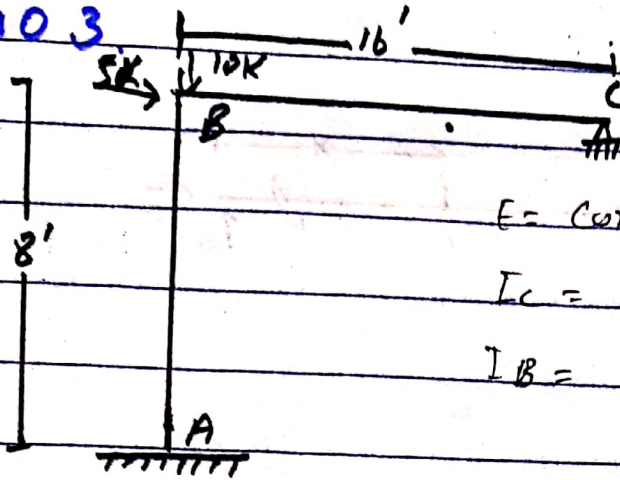 103
16'
5K
10K
B
C
E = Con
8'
Ic =
IB =
A